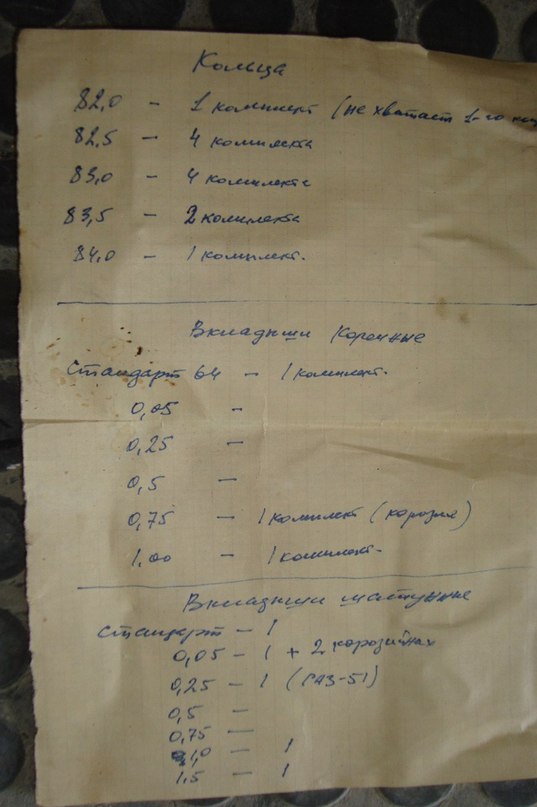 Кольца
82,0 – 1 комплект (не хватает 1-го
82,5 – 4 комплекта
83,0 – 4 комплекта
83,5 – 2 комплекта
84,0 – 1 комплект.
Вкладыши коренные
Стандарт 64 – 1 комплект.
0,05 –
0,25 –
0,5 –
0,75 – 1 комплект (корозия)
1,00 – 1 комплект.
Вкладыши шатунные
Стандарт – 1
0,05 – 1 + 2 корозийнах
0,25 – 1 (ГАЗ-51)
0,5 –
0,75 –
1,0 – 1
1,5 – 1